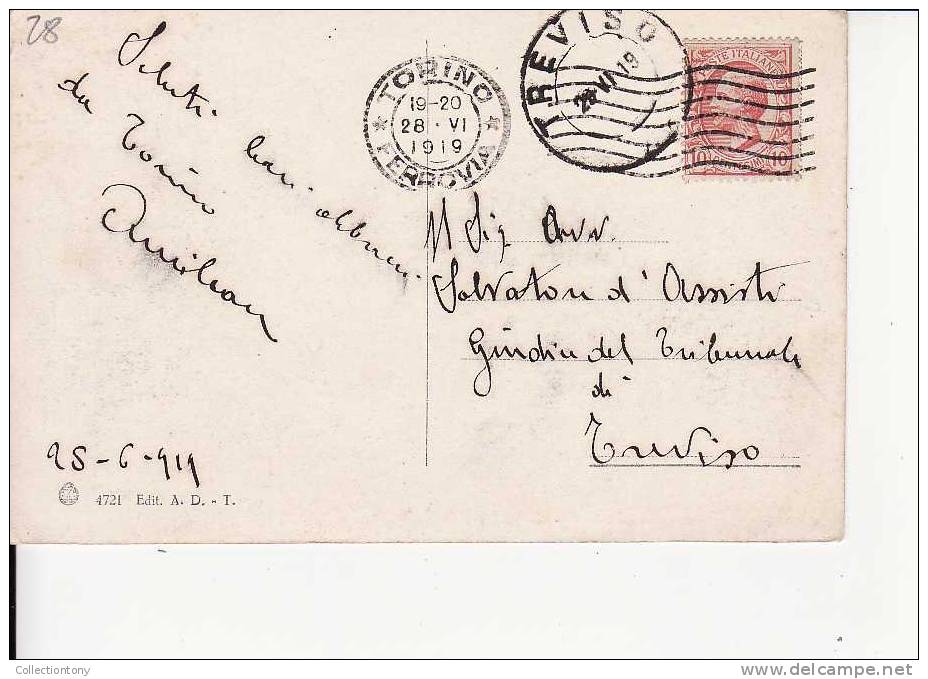 28
Saluti cari
da Torino
TORINO
19-20
28 · VI
1919
FERROVIA
TREVISO
VI 19
POSTE ITALIANE
10 CENTESIMI 10
Il Sig. Avv.
Salvatore d'Assisti
Giudice del Tribunale
di
Treviso
28-6-919
4721 Edit. A. D. - T.
Collectiontony
www.delcampe.net